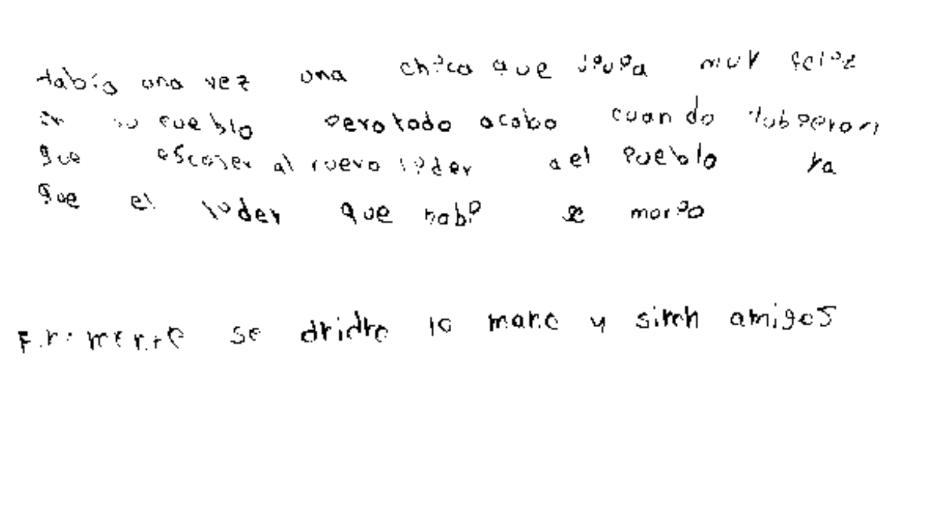 Había una vez una chica que vivía muy feliz
en su pueblo pero todo acabo cuando tubieron
que escojer al nuevo lider del pueblo ya
que el lider que habi se murio
se la mano y amigos